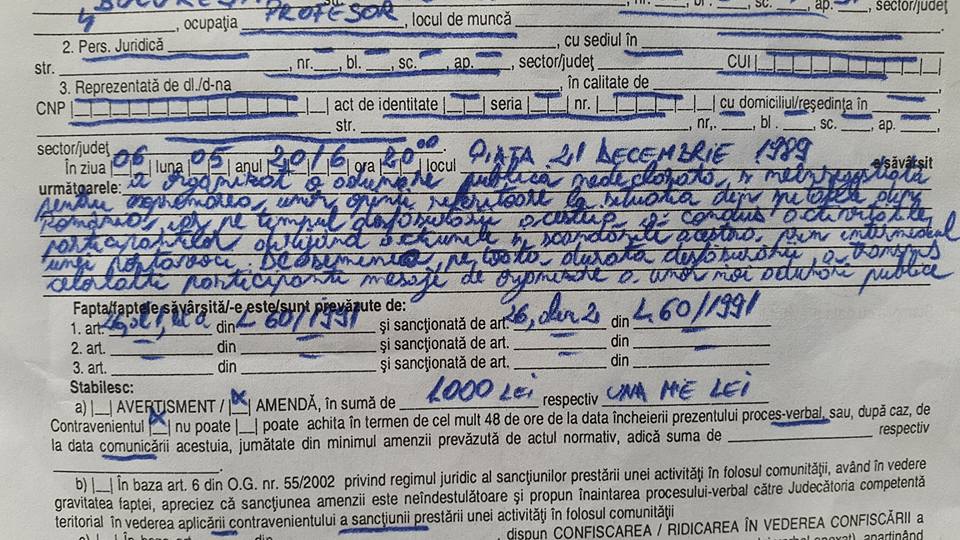 4 BUCUREȘTI nr. bl. sc. ap. sector/județ
, ocupația PROFESOR, locul de muncă
2. Pers. Juridică , cu sediul în
str. , nr. , bl. , sc. , ap. , sector/județ CUI
3. Reprezentată de dl./d-na , în calitate de
CNP act de identitate seria nr. cu domiciliul/reședința în
str. , nr. , bl. , sc. , ap. ,
sector/județ
În ziua 06 luna 05 anul 2016 ora 20 00 locul PIAȚA 21 DECEMBRIE 1989 a/săvârșit
următoarele: a organizat o adunare publică nedeclarată, și neînregistrată
pentru exprimarea unor opinii referitoare la situația din
România, iar pe timpul desfășurării acesteia a condus activitatea
participanților dirijând acțiunile și scandările acestora prin intermediul
unei portavoci. De asemenea, pe toată durata desfășurării, a transmis
celorlalți participanți mesaje de organizare a unor noi adunări publice
Fapta/faptele săvârșită/-e este/sunt prevăzute de:
1. art. 26, al 1, lit a din L 60/1991 și sancționată de art. 26, alin 2 din L 60/1991
2. art. din și sancționată de art. din
3. art. din și sancționată de art. din
Stabilesc:
a) |_| AVERTISMENT / |x| AMENDĂ, în sumă de 1000 LEI respectiv UNA MIE LEI
Contravenientul |x| nu poate |_| poate achita în termen de cel mult 48 de ore de la data încheierii prezentului proces-verbal, sau, după caz, de
la data comunicării acestuia, jumătate din minimul amenzii prevăzută de actul normativ, adică suma de respectiv
.
b) |_| În baza art. 6 din O.G. nr. 55/2002 privind regimul juridic al sancțiunilor prestării unei activități în folosul comunității, având în vedere
gravitatea faptei, apreciez că sancțiunea amenzii este neîndestulătoare și propun înaintarea procesului-verbal către Judecătoria competentă
teritorial în vederea aplicării contravenientului a sancțiunii prestării unei activități în folosul comunității
, dispun CONFISCAREA / RIDICAREA ÎN VEDEREA CONFISCĂRII a